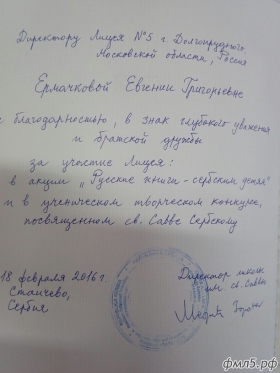 Директору Лицея №5 г. Долгопрудного
Московской области, Россия
Ермачковой Евгении Григорьевне
с благодарностью, в знак глубокого уважения
и братской дружбы
за участие Лицея:
в акции „Русские книги - сербским детям"
и в ученическом творческом конкурсе,
посвященном св. Савве Сербскому
18 февраля 2016 г.
Директор школы
им. св. Саввы
Сербия
фмл5.рф